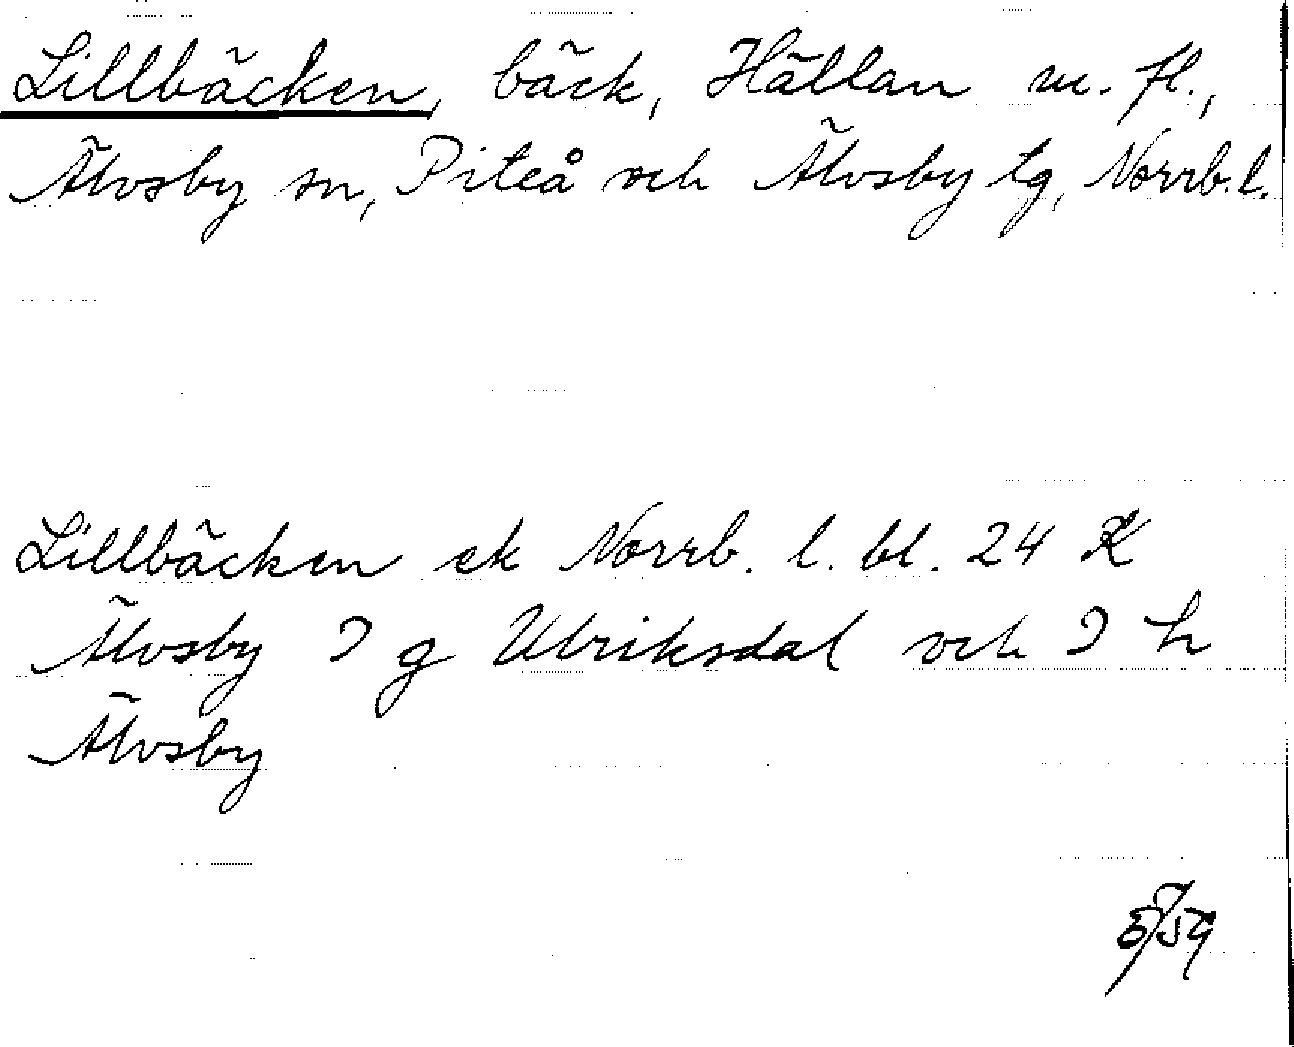 Lillbäcken, bäck, Hällan m. fl.,
Älvsby sn, Piteå och Älvsby tg, Norrb. l.
Lillbäcken ek Norrb. l. bl. 24 K
Älvsby J g Ulriksdal och J h
Älvsby